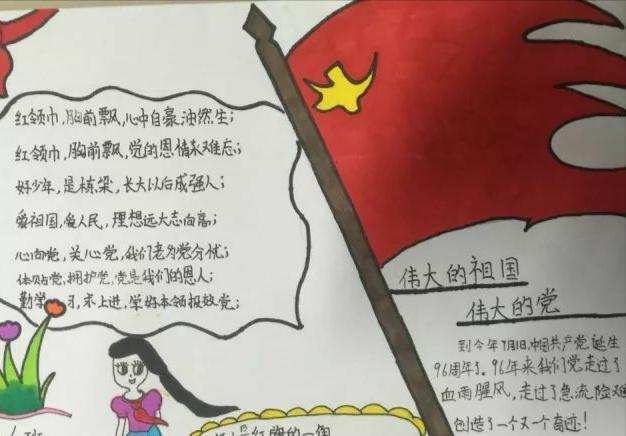 红领巾,胸前飘,心中自豪油然生;
红领巾,胸前飘,党的恩情永难忘;
好少年,是栋梁,长大以后成强人;
爱祖国,爱人民,理想远大志向高;
心向党,关心党,我们老为党分忧;
体贴党,拥护党,党是我们的恩人;
勤学习,求上进,学好本领报效党;
伟大的祖国
伟大的党
到今年7月1日,中国共产党诞生
96周年了。96年来我们党走过了
血雨腥风,走过了急流险滩
创造了一个又一个奇迹!
班
红旗的一角